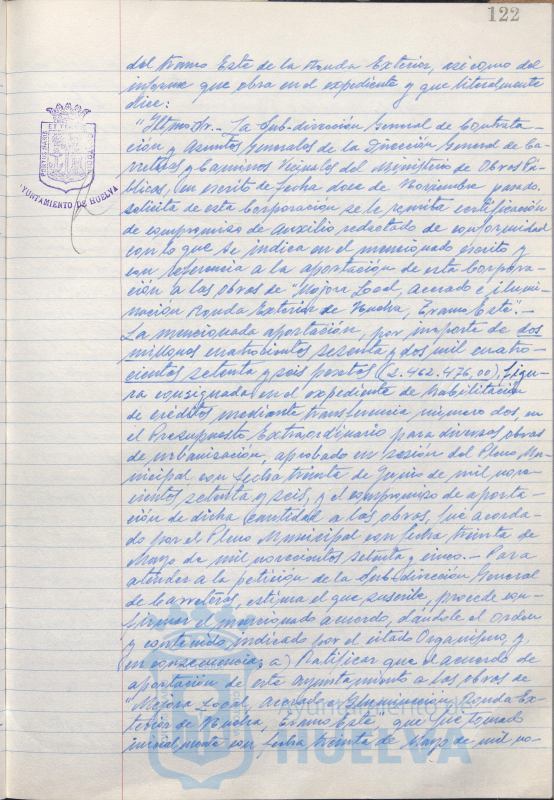 122
del tramo Este de la Ronda Exterior, así como del
informe que obra en el expediente y que literalmente
dice:
"Iltmo Sr.- La Sub-dirección General de Contrata-
ción y Asuntos Generales de la Dirección General de Ca-
rreteras y Caminos Vecinales del Ministerio de Obras Pú-
blicas, en escrito de fecha doce de Noviembre pasado,
solicita de esta Corporación se le remita certificación
de compromiso de auxilio redactado de conformidad
con lo que se indica en el mencionado escrito y
con referencia a la aportación de esta Corpora-
ción a las obras de "Mejora Local, acerado e ilumi-
nación Ronda Exterior de Huelva, Tramo Este".-
La mencionada aportación, por importe de dos
millones cuatrocientos sesenta y dos mil cuatro-
cientos setenta y seis pesetas (2.462.476,00), figu-
ra consignada en el expediente de habilitación
de créditos mediante transferencia número dos, en
el Presupuesto Extraordinario para diversas obras
de urbanización, aprobado en sesión del Pleno Mu-
nicipal con fecha treinta de Junio de mil nove-
cientos setenta y seis, y el compromiso de aporta-
ción de dicha cantidad a las obras, fué acorda-
do por el Pleno Municipal con fecha treinta de
Mayo de mil novecientos setenta y cinco.- Para
atender a la petición de la Sub-dirección General
de Carreteras, estima el que suscribe, procede con-
firmar el mencionado acuerdo, dándole el orden
y contenido indicado por el citado Organismo y
en consecuencia; a) Ratificar que el acuerdo de
aportación de este Ayuntamiento a las obras de
"Mejora Local, acerado e Iluminación, Ronda Ex-
terior de Huelva, Tramo Este" que fue tomado
inicialmente con fecha treinta de Mayo de mil no-
AYUNTAMIENTO DE HUELVA
HUELVA